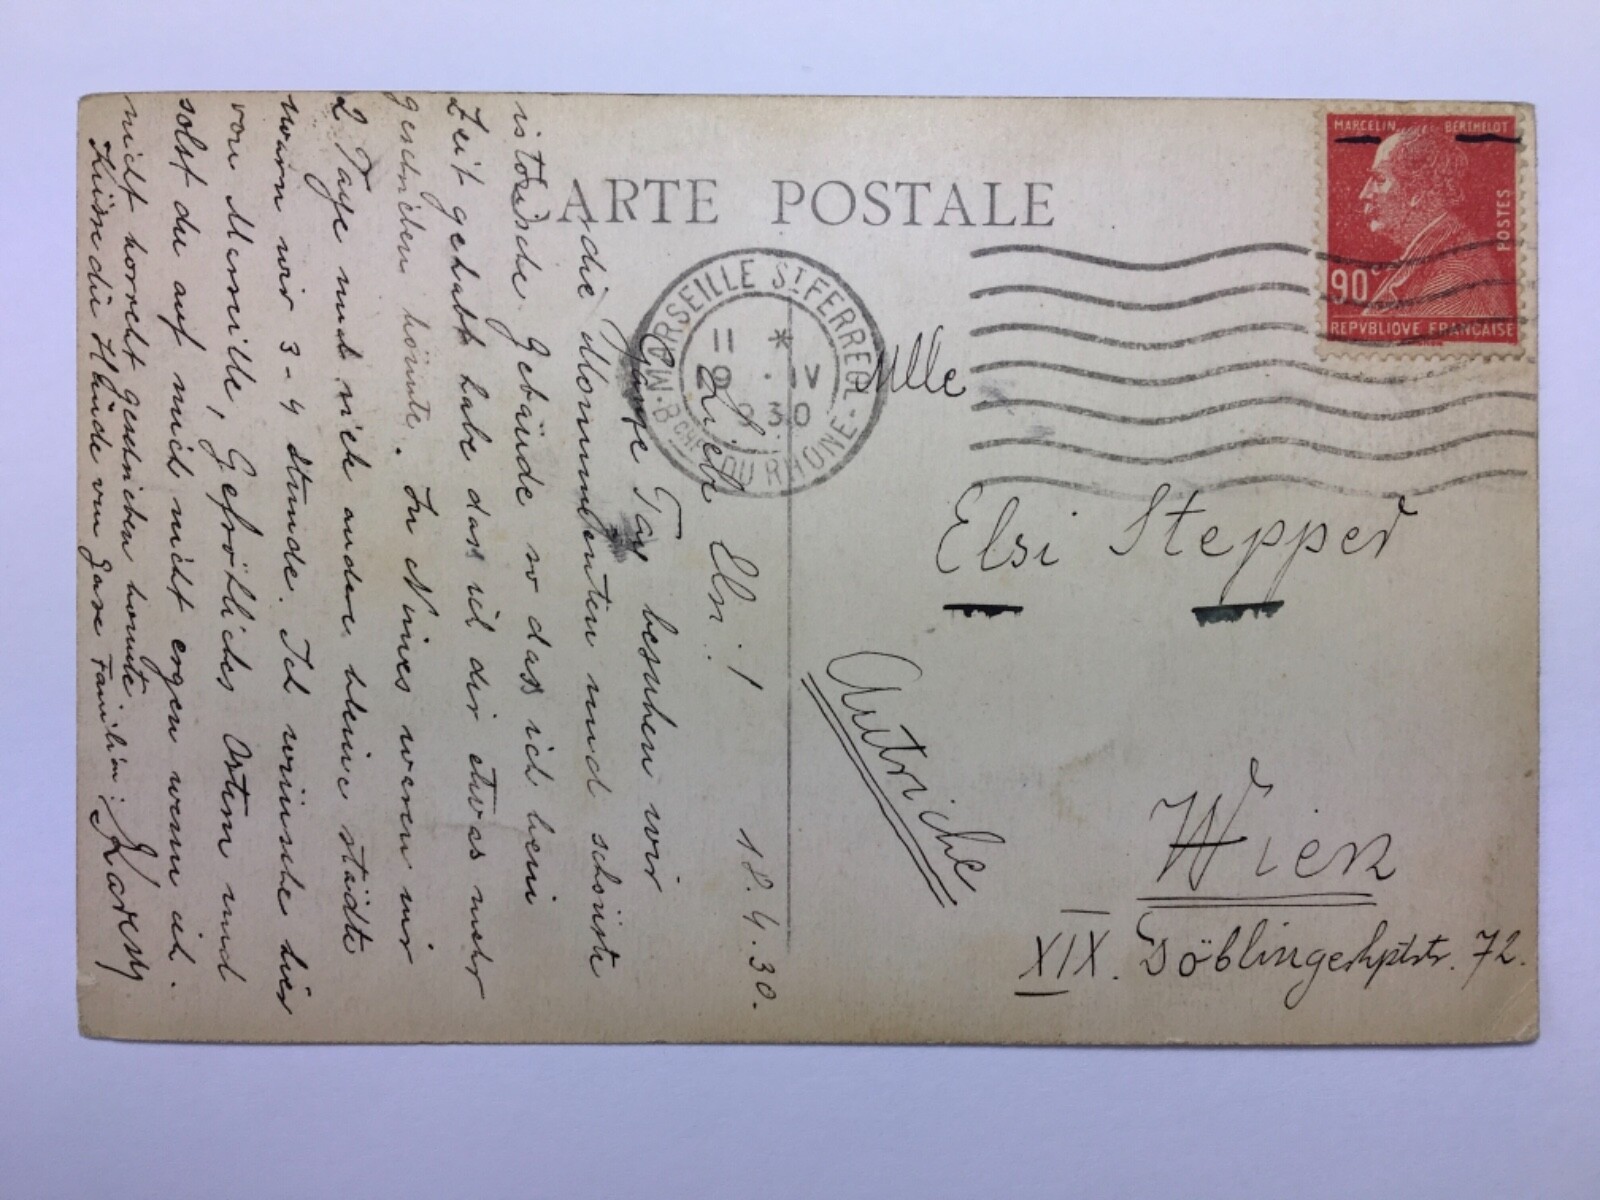 ARTE POSTALE
MARCELIN BERTHELOT
POSTES
90c
REPVBLIQVE FRANCAISE
MARSEILLE ST FERREOL
11 *
20 . IV
30
BCHES DU RHONE
18.4.30.
Liebe Elsi!
Gänze Tag besuhen wir
die Monumenten und schönste
istorische Gebäude so dass ich keni
Zeit gehabt habe das ich dir etwas mehr
geschrieben könnte. In Nimes waren wir
2 Tage und viele andere kleine städte
waren wir 3-4 Stunde. Ich wünsche hier
von Marseille, Gefröhliches Ostern und
solst du auf mich nicht ergern wenn ich
nicht korrekt geschrieben konnte.
Küsse die Hände von ganze Familie
Mlle
Elsi Stepper
Autriche
Wien
XIX. Döblingerhptstr. 72.